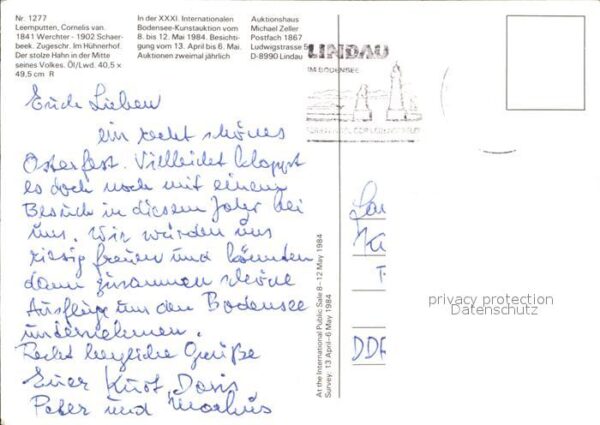 Nr. 1277
Leemputten, Cornelis van.
1841 Werchter - 1902 Schaer-
beek. Zugeschr. Im Hühnerhof.
Der stolze Hahn in der Mitte
seines Volkes. Öl/Lwd. 40,5 x
49,5 cm R
In der XXXI. Internationalen
Bodensee-Kunstauktion vom
8. bis 12. Mai 1984. Besichti-
gung vom 13. April bis 6. Mai.
Auktionen zweimal jährlich
Auktionshaus
Michael Zeller
Postfach 1867
Ludwigstrasse 5
D-8990 Lindau
LINDAU
IM BODENSEE
Euch Lieben
ein recht schönes
Osterfest. Vielleicht klappt
es doch noch mit einem
Besuch in diesem Jahr bei
uns. Wir würden uns
riesig freuen und könnten
dann zusammen schöne
Ausflüge um den Bodensee
unternehmen.
Recht herzliche Grüße
Euer Kurt, Doris
Peter und Markus
At the International Public Sale 8–12 May 1984
Survey: 13 April–6 May 1984
DDR
privacy protection
Datenschutz